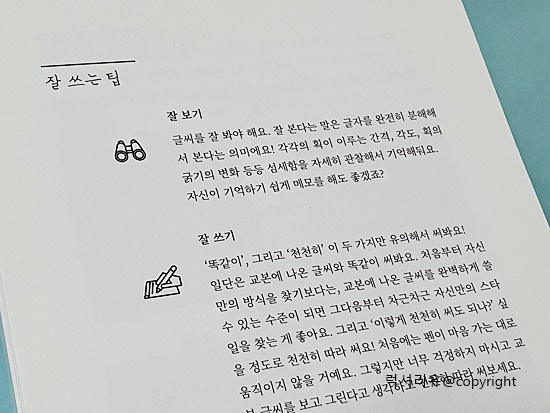 잘 쓰는 팁
잘 보기
글씨를 잘 봐야 해요. 잘 본다는 말은 글자를 완전히 분해해
서 본다는 의미에요! 각각의 획이 이루는 간격, 각도, 획의
굵기의 변화 등등 섬세함을 자세히 관찰해서 기억해둬요.
자신이 기억하기 쉽게 메모를 해도 좋겠죠?
잘 쓰기
'똑같이', 그리고 '천천히' 이 두 가지만 유의해서 써봐요!
일단은 교본에 나온 글씨와 똑같이 써봐요. 처음부터 자신
만의 방식을 찾기보다는, 교본에 나온 글씨를 완벽하게 쓸
수 있는 수준이 되면 그다음부터 차근차근 자신만의 스타
일을 찾는 게 좋아요. 그리고 '이렇게 천천히 써도 되나?' 싶
을 정도로 천천히 따라 써요! 처음에는 펜이 마음 가는 대로
움직이지 않을 거예요. 그렇지만 너무 걱정하지 마시고 교
본 글씨를 보고 그린다고 생각하고 따라 써보세요.
@copyright